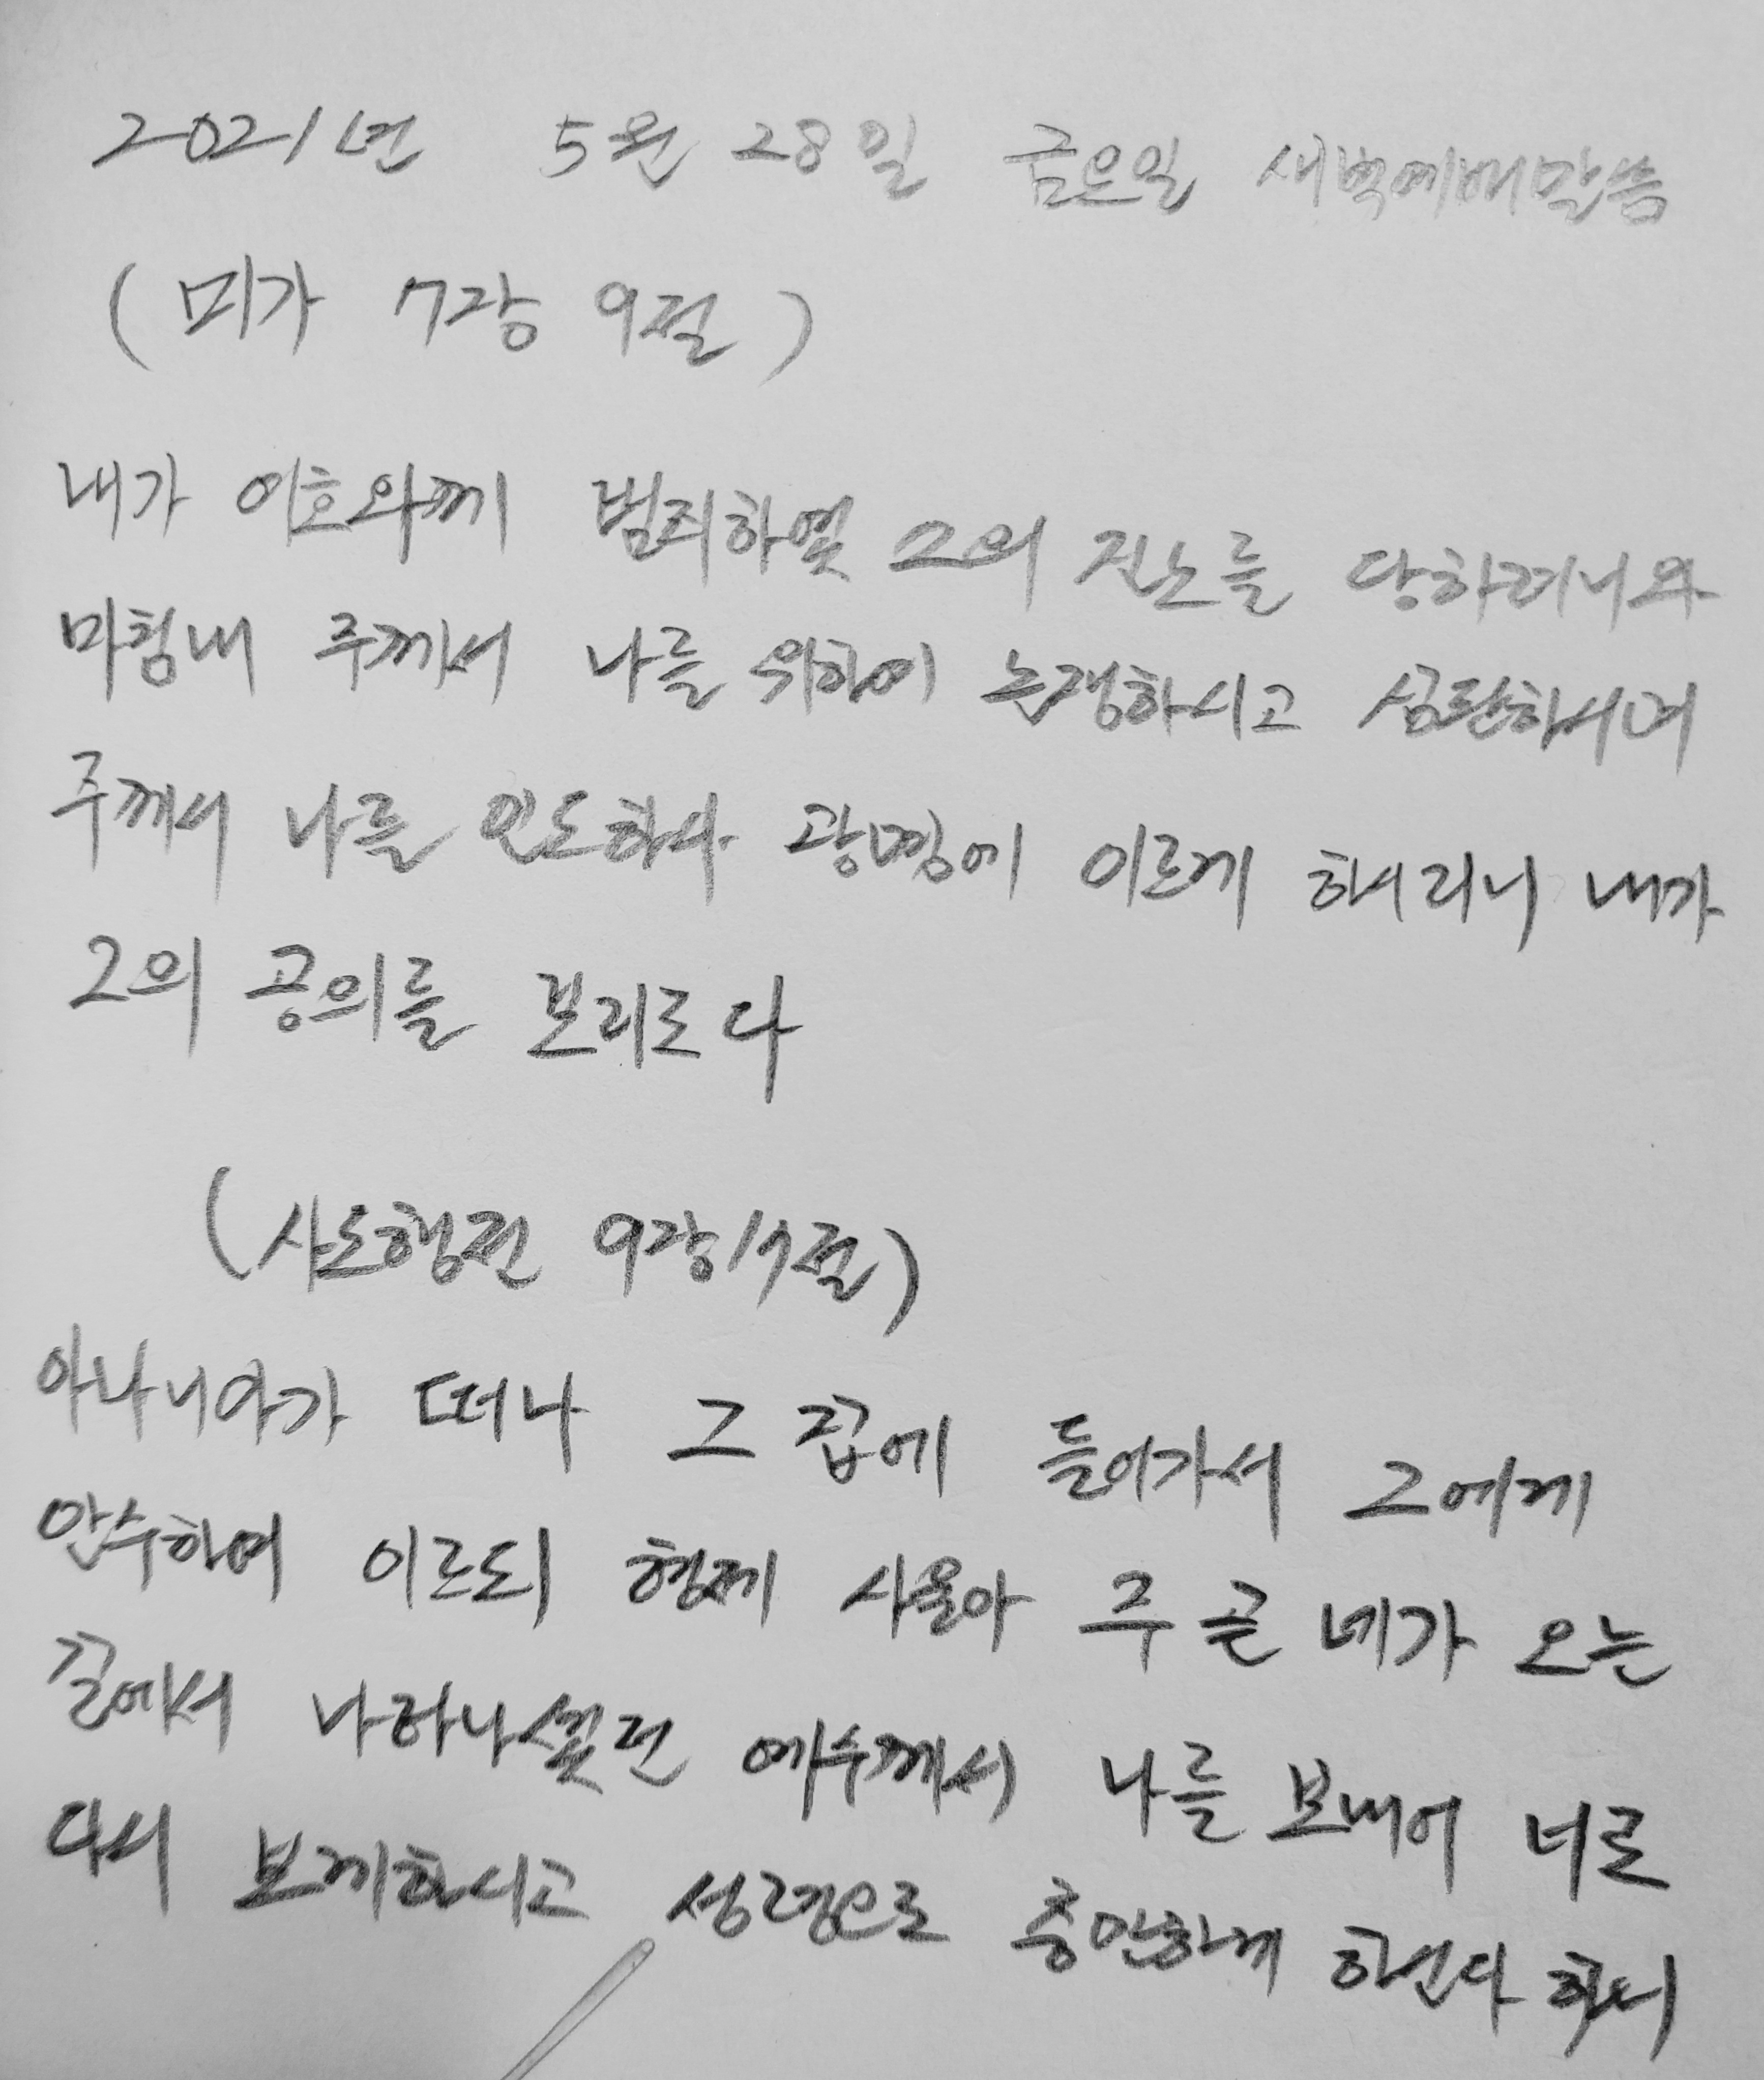 2021년 5월 28일 금요일 새벽예배말씀
(미가 7장 9절)
내가 여호와께 범죄하였 그의 진노를 당하려니와
마침내 주께서 나를 위하여 논쟁하시고 심판하시며
주께서 나를 인도하사 광명에 이르게 하시리니 내가
그의 공의를 보리로다
(사도행전 9장17절)
아나니아가 떠나 그 집에 들어가서 그에게
안수하여 이르되 형제 사울아 주 곧 네가 오는
길에서 나타나셨던 예수께서 나를 보내어 너로
다시 보게하시고 성령으로 충만하게 하신다 하니